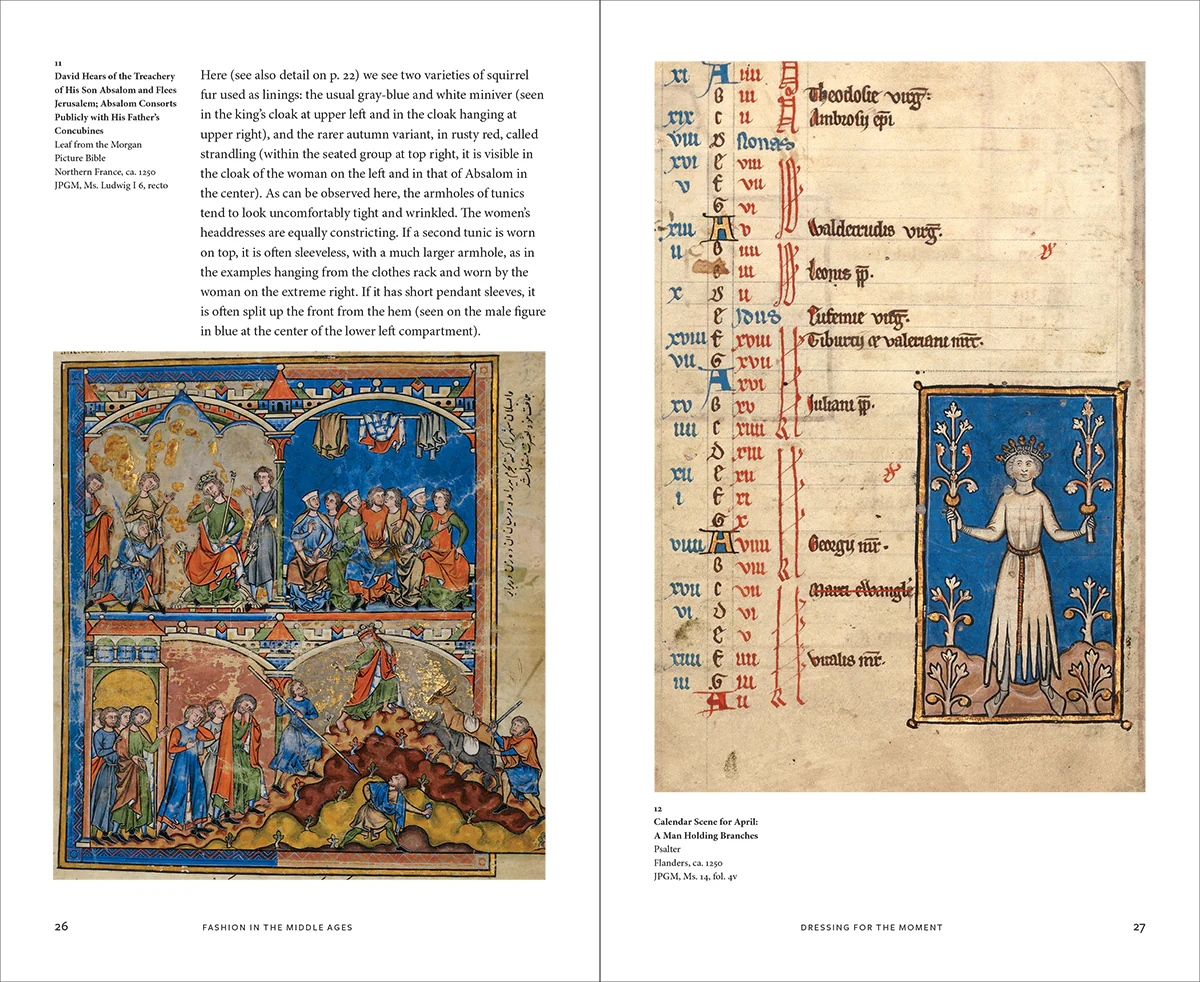 11
David Hears of the Treachery
of His Son Absalom and Flees
Jerusalem; Absalom Consorts
Publicly with His Father’s
Concubines
Leaf from the Morgan
Picture Bible
Northern France, ca. 1250
JPGM, Ms. Ludwig I 6, recto
Here (see also detail on p. 22) we see two varieties of squirrel
fur used as linings: the usual gray-blue and white miniver (seen
in the king’s cloak at upper left and in the cloak hanging at
upper right), and the rarer autumn variant, in rusty red, called
strandling (within the seated group at top right, it is visible in
the cloak of the woman on the left and in that of Absalom in
the center). As can be observed here, the armholes of tunics
tend to look uncomfortably tight and wrinkled. The women’s
headdresses are equally constricting. If a second tunic is worn
on top, it is often sleeveless, with a much larger armhole, as in
the examples hanging from the clothes rack and worn by the
woman on the extreme right. If it has short pendant sleeves, it
is often split up the front from the hem (seen on the male figure
in blue at the center of the lower left compartment).
26
FASHION IN THE MIDDLE AGES
xi A iiii
B iii Theodosie virg.
xix c ii Ambrosij epi
viii d Nonas
xvi e viii
v f vii
G vi
xiii A v Waldetrudis virg.
ii B iiii
iii Leonis pp.
x d ii
e Idus Eufemie virg.
xviii f xviii Tiburcij et valeriani mrr.
vii G xvii
A xvi
xv B xv Iuliani pp.
iiii c xiiii
d xiii
xii e xii
i f xi
G x
viiii A viiii Georgij mr.
B viii
xvii c vii Marci ewangle
vi d vi
e v
xiiii f iiii Vitalis mr.
iii G iii
A ii
12
Calendar Scene for April:
A Man Holding Branches
Psalter
Flanders, ca. 1250
JPGM, Ms. 14, fol. 4v
DRESSING FOR THE MOMENT
27